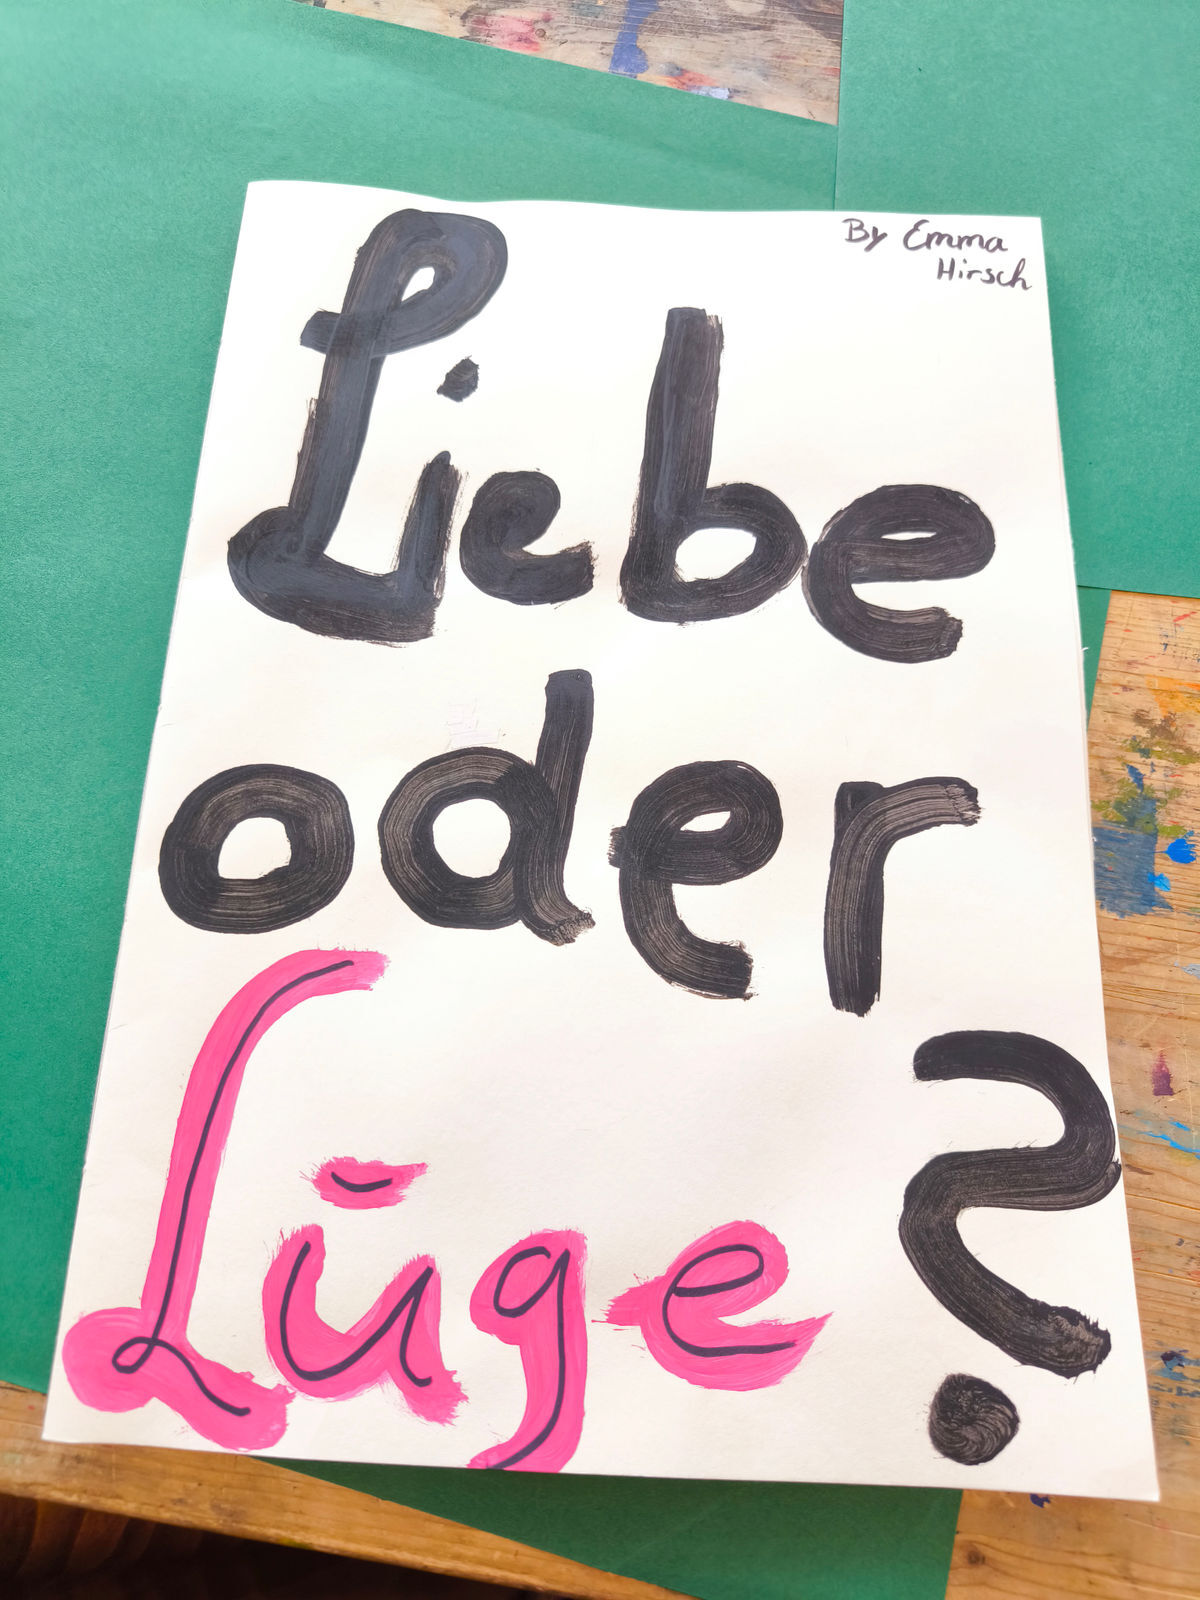 By Emma
Hirsch
Liebe
oder
Lüge?